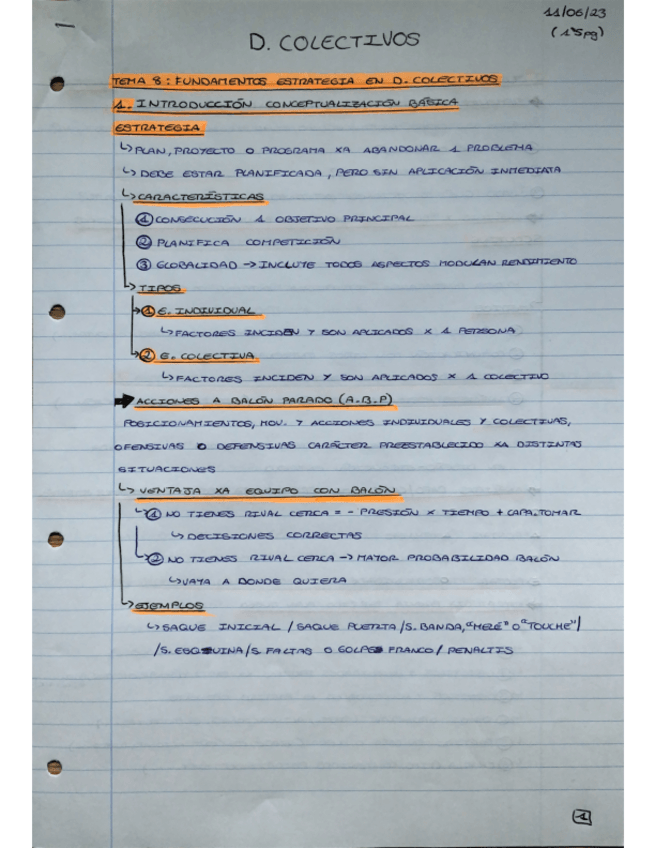 1
11/06/23
(15pg)
D. COLECTIVOS
TEMA 8: FUNDAMENTOS ESTRATEGIA EN D. COLECTIVOS
1. INTRODUCCIÓN CONCEPTUALIZACIÓN BÁSICA
ESTRATEGIA
↳ PLAN, PROYECTO O PROGRAMA XA ABANDONAR 1 PROBLEMA
↳ DEBE ESTAR PLANIFICADA, PERO SIN APLICACIÓN INMEDIATA
↳ CARACTERÍSTICAS
① CONSECUCIÓN 1 OBJETIVO PRINCIPAL
② PLANIFICA COMPETICIÓN
③ GLOBALIDAD → INCLUYE TODOS ASPECTOS MODULAN RENDIMIENTO
↳ TIPOS
→ ① E. INDIVIDUAL
↳ FACTORES INCIDEN Y SON APLICADOS X 1 PERSONA
→ ② E. COLECTIVA
↳ FACTORES INCIDEN Y SON APLICADOS X 1 COLECTIVO
➡ ACCIONES A BALÓN PARADO (A.B.P)
POSICIONAMIENTOS, MOV. Y ACCIONES INDIVIDUALES Y COLECTIVAS,
OFENSIVAS O DEFENSIVAS CARÁCTER PREESTABLECIDO XA DISTINTAS
SITUACIONES
↳ VENTAJA XA EQUIPO CON BALÓN
↳ ① NO TIENES RIVAL CERCA = - PRESIÓN X TIEMPO + CAPA. TOMAR
↳ DECISIONES CORRECTAS
↳ ② NO TIENES RIVAL CERCA → MAYOR PROBABILIDAD BALÓN
↳ VAYA A DONDE QUIERA
↳ EJEMPLOS
↳ SAQUE INICIAL / SAQUE PUERTA / S. BANDA, "MELÉ" O "TOUCHE" /
/ S. ESQUINA / S. FALTAS O GOLPE FRANCO / PENALTIS
1